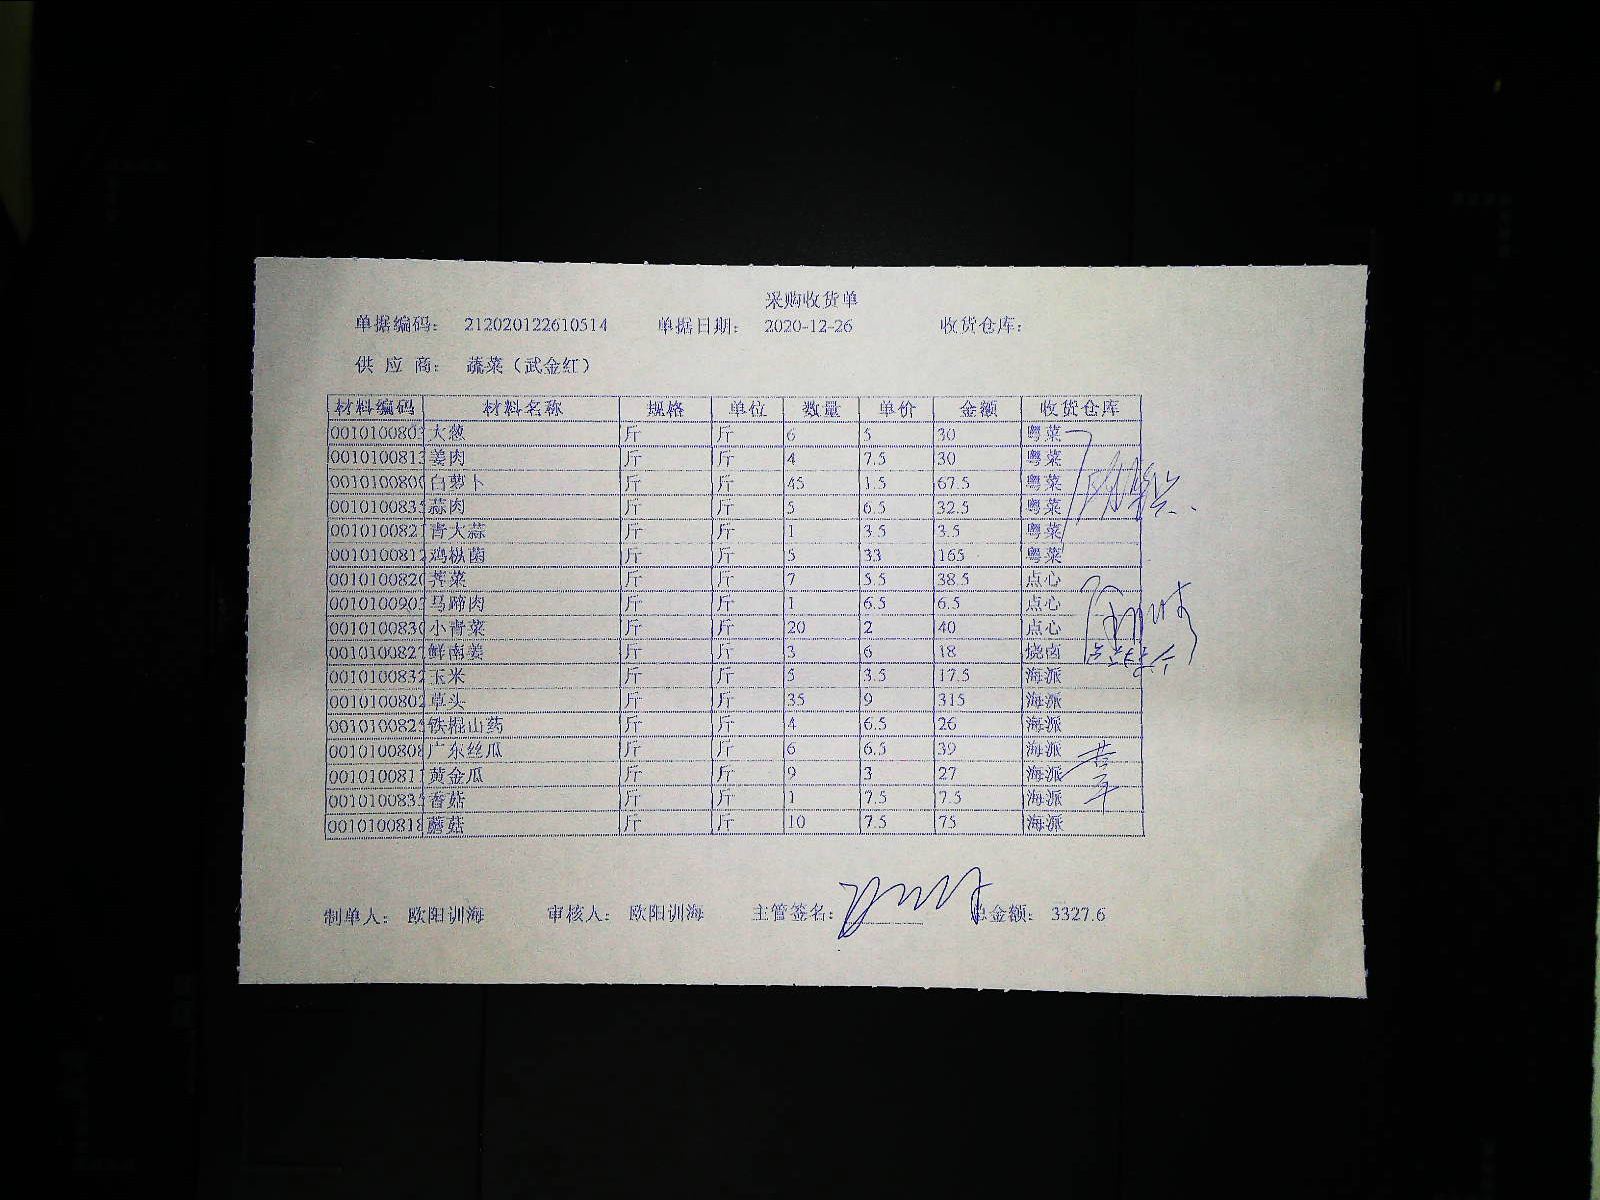 采购收货单
单据编码： 212020122610514 单据日期： 2020-12-26 收货仓库：
供 应 商： 蔬菜（武金红）
材料编码 材料名称 规格 单位 数量 单价 金额 收货仓库
0010100803 大葱 斤 斤 6 5 30 粤菜
0010100813 姜肉 斤 斤 4 7.5 30 粤菜
0010100800 白萝卜 斤 斤 45 1.5 67.5 粤菜
0010100835 蒜肉 斤 斤 5 6.5 32.5 粤菜
0010100821 青大蒜 斤 斤 1 3.5 3.5 粤菜
0010100812 鸡枞菌 斤 斤 5 33 165 粤菜
0010100820 荠菜 斤 斤 7 5.5 38.5 点心
0010100903 马蹄肉 斤 斤 1 6.5 6.5 点心
0010100830 小青菜 斤 斤 20 2 40 点心
0010100827 鲜南姜 斤 斤 3 6 18 烧卤
0010100832 玉米 斤 斤 5 3.5 17.5 海派
0010100802 草头 斤 斤 35 9 315 海派
0010100825 铁棍山药 斤 斤 4 6.5 26 海派
0010100808 广东丝瓜 斤 斤 6 6.5 39 海派
0010100811 黄金瓜 斤 斤 9 3 27 海派
0010100835 香菇 斤 斤 1 7.5 7.5 海派
0010100818 蘑菇 斤 斤 10 7.5 75 海派
制单人： 欧阳训海 审核人： 欧阳训海 主管签名： 总金额： 3327.6